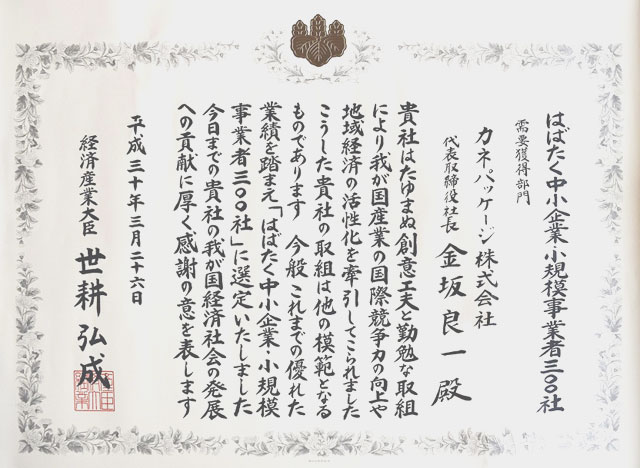 はばたく中小企業・小規模事業者三〇〇社
需要獲得部門
カネパッケージ株式会社
代表取締役社長 金坂良一殿
貴社はたゆまぬ創意工夫と勤勉な取組
により我が国産業の国際競争力の向上や
地域経済の活性化を牽引してこられました
こうした貴社の取組は他の模範となる
ものであります 今般これまでの優れた
業績を踏まえ「はばたく中小企業・小規模
事業者三〇〇社」に選定いたしました
今日までの貴社の我が国経済社会の発展
への貢献に厚く感謝の意を表します
平成三十年三月二十六日
経済産業大臣 世耕弘成